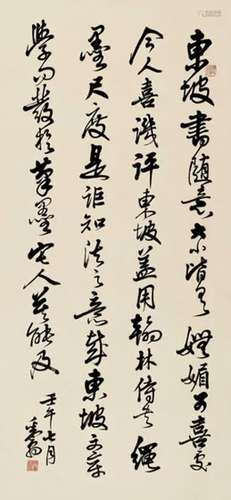 東坡書随意皆有嫵媚可喜處
今人喜譏評東坡蓋用翰林侍書繩
墨尺度是詎知法之意哉東坡文章
學問發於筆墨它人莫能及
壬午七月